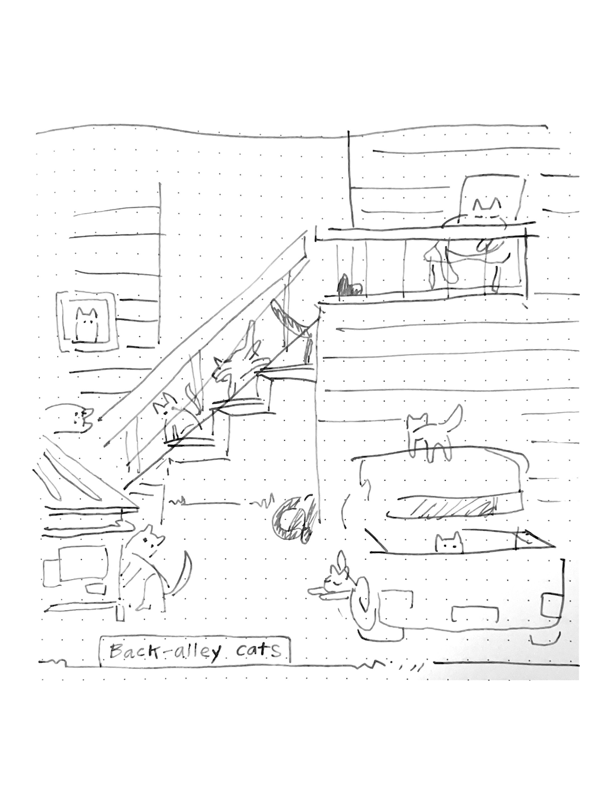 Back-alley cats